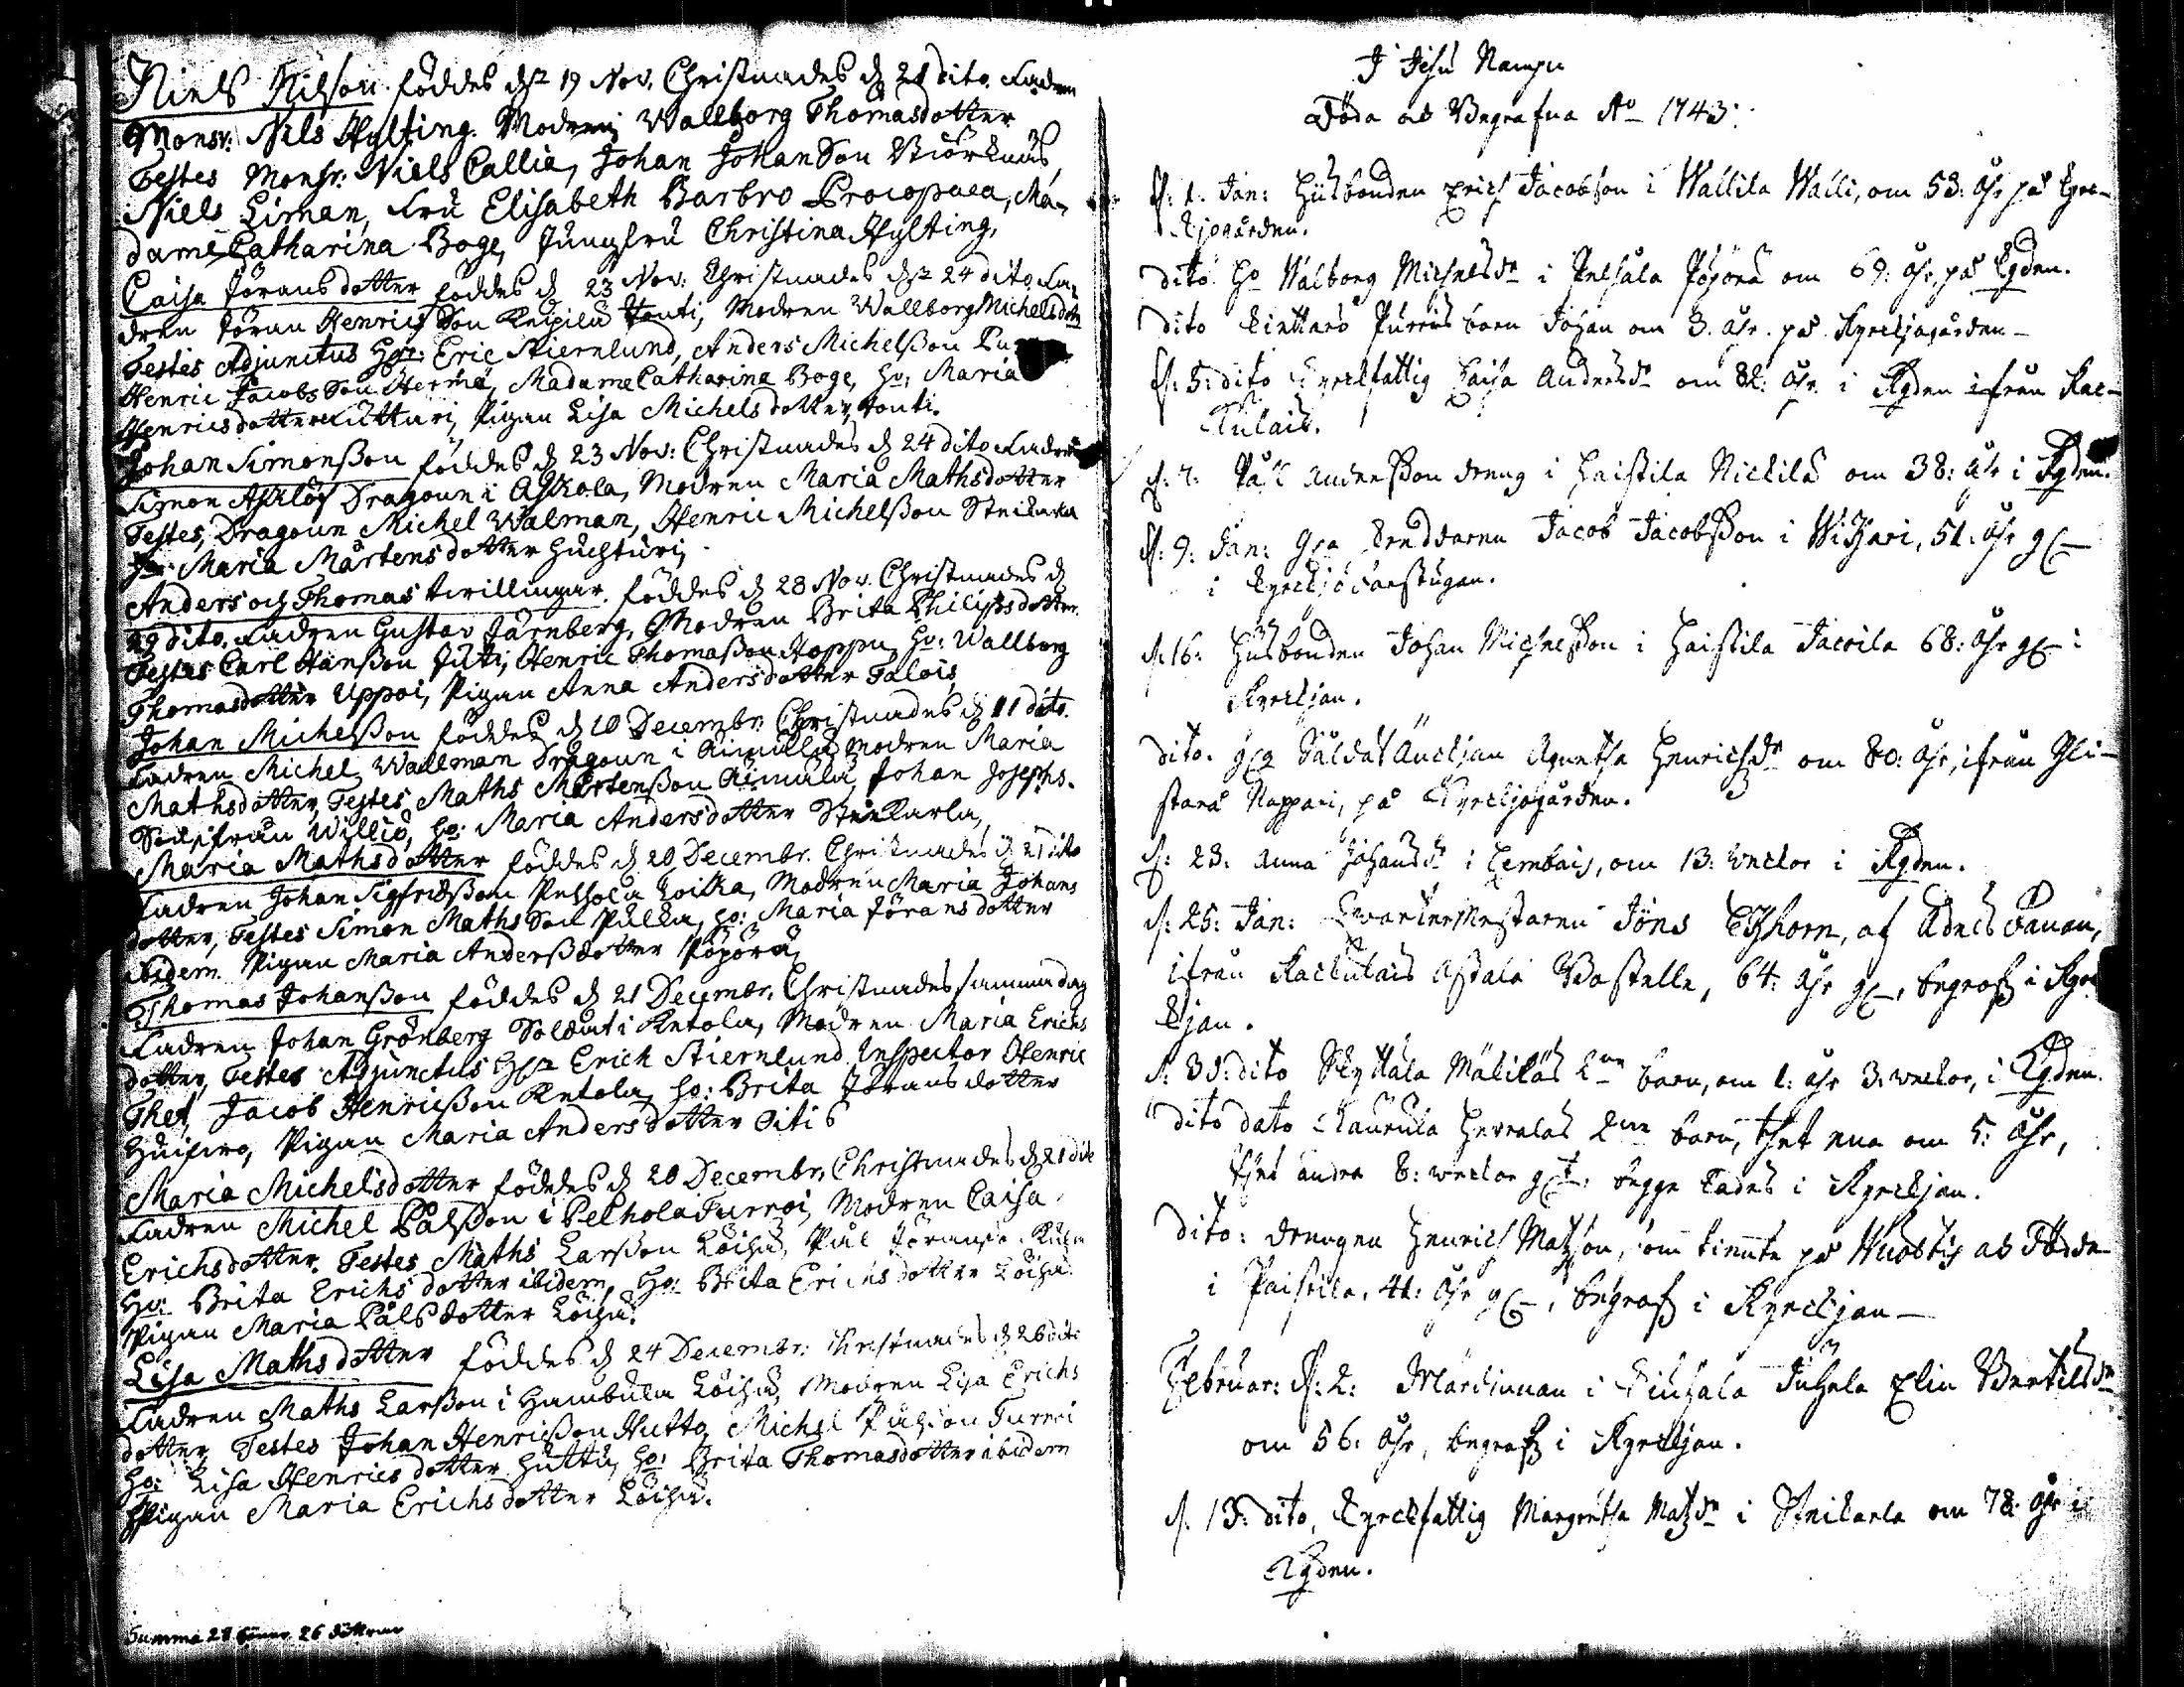 Niels Nilson föddes d 19 Nov. Christnades d 21 dito. Fadren
Monsr: Nils Hylting. Modren Wallborg Thomasdotter
Testes Monsr: Niels Callia, Johan Johan Son Biörknäs,
Niels Liman, Fru Elisabeth Barbro Procopaea, Ma-
dame Catharina Boge, Jungfru Christina Hylting.
Caisa Jörans dotter föddes d 23 Nov: Christnades d 24 dito. Fa-
dren Jöran Henrics Son Knipila Jonti, Modren Wallborg Michelsdotter
Testes Adjunctus Hr: Eric Stiernlund, Anders Michelsson
Henric Jacobs Son Herma, Madame Catharina Boge, ho: Maria
Henricsdotter Kuttari, Pigan Lisa Michels dotter Jonti.
Johan Simonsson föddes d 23 Nov: Christnades d 24 dito Fadren
Simon Asklöf Dragoun i Askola, Modren Maria Mathsdotter
Testes, Dragoun Michel Walman, Henric Michelsson Steikarla
ho: Maria Mårtensdotter Huchturi,
Anders och Thomas twillingar föddes d 28 Nov. Christnades d
29 dito. Fadren Gustav Järnberg, Modren Brita Philipsdotter.
Testes Carl Hansson Juti, Henric Thomasson Hoppu, ho: Wallborg
Thomasdotter Uppoi, Pigan Anna Andersdotter Talois
Johan Michelsson föddes d 10 Decembr: Christnades d 11 dito.
Fadren Michel Wallman Dragoun i Rimillä Modren Maria
Mathsdotter, Testes Maths Mårtensson Rimilä, Johan Josephs-
Son, ifrån Willio, ho: Maria Andersdotter Steikarla,
Maria Mathsdotter föddes d 20 Decembr. Christnades d 21 dito
Fadren Johan Sigfridsson Pelhola Koikka, Modren Maria Johans
dotter, Testes Simon Maths Son Pulla, ho: Maria Jörans dotter
ibidem Pigan Maria Anderssdotter Pöpörä,
Thomas Johansson föddes d 21 Decembr. Christnades samma dag
Fadren Johan Grönberg Soldat i Ketola, Modren Maria Erichs
dotter, Testes Adjunctus Hr Erich Stiernlund Inspector Henric
Thet, Jacob Henricsson Ketola, ho: Brita Jöransdotter
Pigan Maria Andersdotter Oitis
Maria Michelsdotter föddes d 20 Decembr, Christnades d 21 dito
Fadren Michel Pålsson i Pelhola Turroi, Modren Caisa
Erichsdotter, Testes Maths Larsson Löihu, Pål Jöranson
Ho: Brita Erichs dotter ibidem, Ho: Brita Erichs dotter Löihu
Pigan Maria Påls dotter Löihu.
Lisa Mathsdotter föddes d 24 Decembr: Christnades d 26 dito
Fadren Maths Larsson i Hambula Löihu, Modren Lisa Erichs
dotter, Testes Johan Henricsson Hutto, Michel Pålsson Turroi
Ho: Lisa Henrics dotter Huttu, ho: Brita Thomasdotter ibidem
Pigan Maria Erichsdotter Löihu.
Summa 28 söner 26 döttrar
I Jesu Nampn
Döda ok Begrafna Ao 1743:
d: 1. Jan: Husbonden Erich Jacobson i Wallila Walli, om 58. åhr på Kyrc-
kjogården.
dito ho Walborg Michelsdr i Pelhala Pöpörä om 69. åhr, på Kgden.
dito Kinttaro Purrus barn Johan om 3. åhr. på Kyrckjogården
d: 5: dito Kyrckfattig Caisa Andersdr om 82: åhr i Kgden ifrån Rac-
kulais.
d: 7. Pål Andersson dreng i Haistila Nickilä om 38: åhr i Kgden.
d: 9: Jan: Jacob Jacobsson i Wichari, 51. åhr gl
i Kyrckjo
d: 16: Husbonden Johan Michelsson i Haistila Jacoila 68: åhr gl i
Kyrckjan.
dito. gla Soldat Änckjan Agnetha Henrichsdr om 80: åhr, ifrån Yli-
stara Nappari, på Kyrckjogården.
d: 23: Anna Johansdr i Lembais, om 13: weckor i Kgden.
d: 25: Jan: Qvartermestaren Jöns Ekhorn, af Adels Fanan,
ifrån Rackulais Astala Bostelle, 64: åhr gl, begrafs i Kyrc
kjan.
d: 30: dito Skyttala Mäkiläs 2ne barn, om 1: åhr 3: weckor, i Kgden.
dito dato Kaurula Herralas 2ne barn, thet ena om 5: åhr,
thet andra 8: weckor glt. begge lades i Kyrckjan.
dito: drengen Henrich Matsson, som tiente på Kuostis ok dödde
i Paistila, 41: åhr gl, begrafs i Kyrckjan
Februar: d: 2: Mårdinnan i Juhala Elin Bertilsdr
om 56: åhr, begrafs i Kyrckjan.
d. 13: dito, Kyrckfattig Margretha Matsdr i Steikarla om 78: åhr i
Kgden.